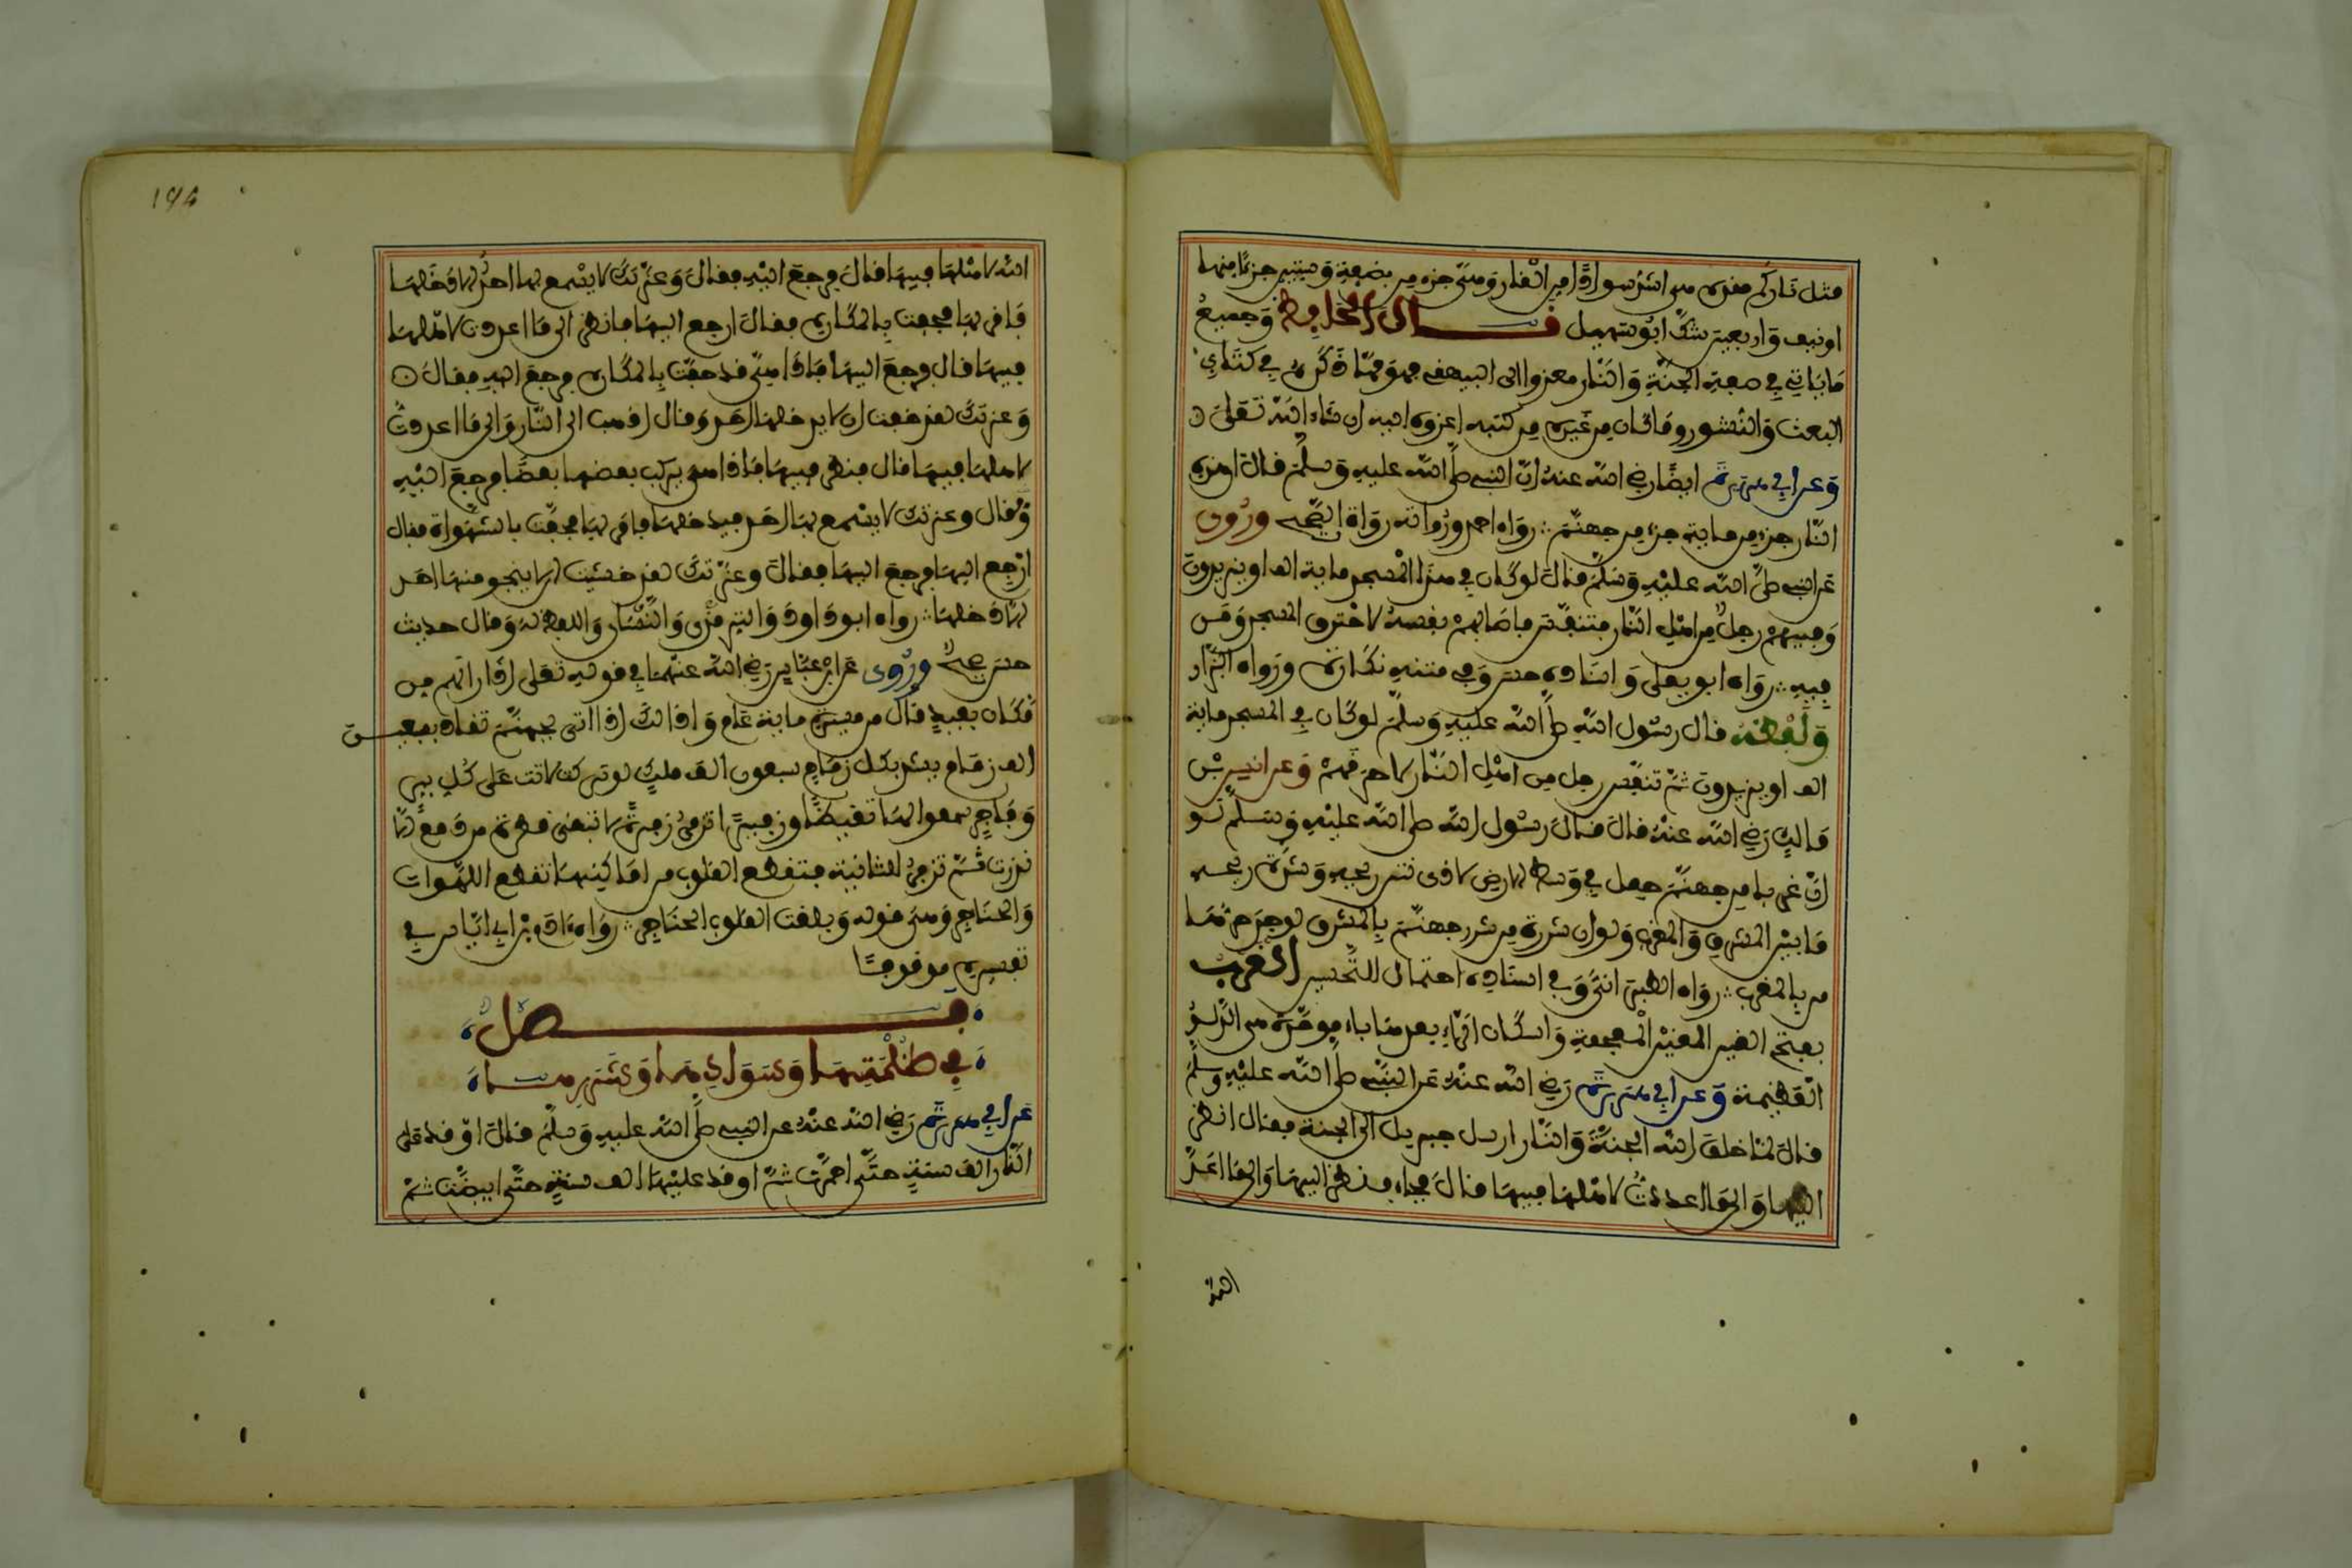 مثل ناركم هذه هي أشد سوادا من القار وهي جزء من بضعة وستين جزءا منها
أو نيف وأربعين شك أبو سهيل قال الحافظ وجميع
ما يأتي في صفة الجنة والنار معزوا إلى البيهقي فهو مما ذكره في كتاب
البعث والنشور وما كان من غيره من كتبه أعزوه إليه إن شاء الله تعلى
وعن أبي هريرة أيضا رضي الله عنه أن النبي صلى الله عليه وسلم قال إن هذه
النار جزء من ماية جزء من جهنم رواه أحمد ورواته رواة الصحيح وروي
عن النبي صلى الله عليه وسلم قال لو كان في هذا المسجد ماية ألف أو يزيدون
وفيهم رجل من أهل النار فتنفس فأصابهم نفسه لاحترق المسجد ومن
فيه رواه أبو يعلى وإسناده حسن وفي متنه نكارة ورواه البزار
ولفظه قال رسول الله صلى الله عليه وسلم لو كان في المسجد ماية
ألف أو يزيدون ثم تنفس رجل من أهل النار لأحرقهم وعن أنس بن
مالك رضي الله عنه قال قال رسول الله صلى الله عليه وسلم لو
أن غربا من جهنم جعل في وسط الأرض لآذى نتن ريحه وشدة حره
ما بين المشرق والمغرب ولو أن شررة من شرر جهنم بالمشرق لوجد حرها
من بالمغرب رواه الطبراني وفي إسناده احتمال للتحسين الغرب
بفتح الغين المعجمة وإسكان الراء بعدهما باء موحدة هي الدلو
العظيمة وعن أبي هريرة رضي الله عنه عن النبي صلى الله عليه وسلم
قال لما خلق الله الجنة والنار أرسل جبريل إلى الجنة فقال انظر
إليها وإلى ما أعددت لأهلها فيها قال فجاء فنظر إليها وإلى ما أعد
الله
194
الله لأهلها فيها قال فرجع إليه فقال وعزتك لا يسمع بها أحد إلا دخلها
فأمر بها فحفت بالمكاره فقال ارجع إليها فانظر إلى ما أعددت لأهلها
فيها قال فرجع إليها فإذا هي قد حفت بالمكاره فرجع إليه فقال
وعزتك لقد خفت أن لا يدخلها أحد وقال اذهب إلى النار وإلى ما أعددت
لأهلها فيها قال فنظر فيها فإذا هي يركب بعضها بعضا فرجع إليه
فقال وعزتك لا يسمع بها أحد فيدخلها فأمر بها فحفت بالشهوات فقال
ارجع إليها فرجع إليها فقال وعزتك لقد خشيت أن لا ينجو منها أحد
إلا دخلها رواه أبو داود والترمذي والنسائي واللفظ له وقال حديث
حسن صحيح وروي عن ابن عباس رضي الله عنهما في قوله تعلى إذا رأتهم من
مكان بعيد قال من مسيرة ماية عام وذلك إذا أتي بجهنم تقاد بسبعين
ألف زمام يشد بكل زمام سبعون ألف ملك لو تركت لأتت على كل بر
وفاجر سمعوا لها تغيظا وزفيرا تزفر زفرة لا تبقى قطرة من دمع إلا
بدرت ثم تزفر الثانية فتقطع القلوب من أماكنها تقطع اللهوات
والحناجر وهي قوله وبلغت القلوب الحناجر رواه آدم بن أبي إياس في
تفسيره موقوفا
فصل
في ظلمتها وسوادها وشررها
عن أبي هريرة رضي الله عنه عن النبي صلى الله عليه وسلم قال أوقد على
النار ألف سنة حتى احمرت ثم أوقد عليها ألف سنة حتى ابيضت ثم